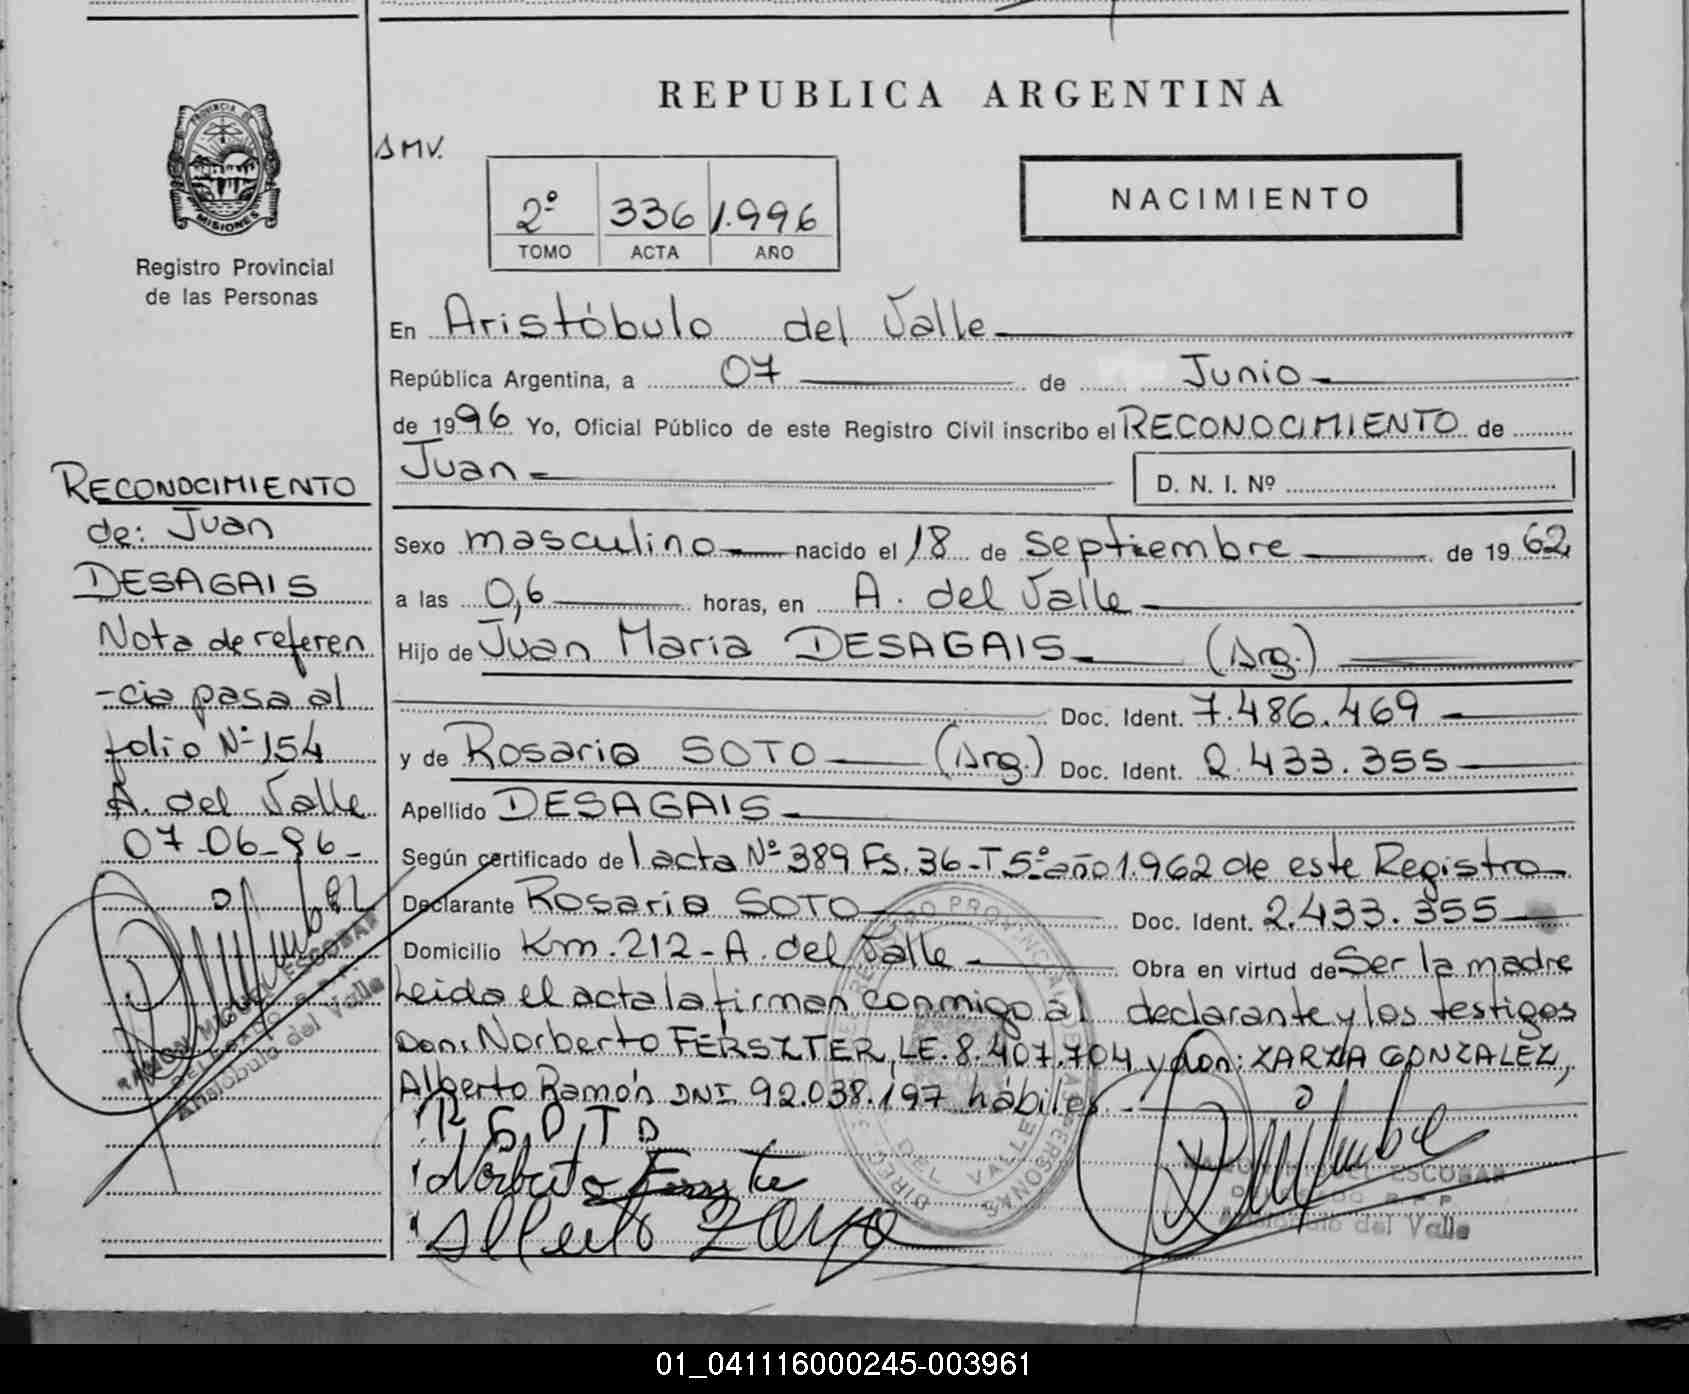 REPUBLICA ARGENTINA
PROVINCIA DE
MISIONES
Registro Provincial
de las Personas
SMV.
2º 336 1.996
TOMO ACTA AÑO
NACIMIENTO
En Aristóbulo del Valle
República Argentina, a 07 de Junio
de 1996 Yo, Oficial Público de este Registro Civil inscribo el RECONOCIMIENTO de
Juan D. N. I. Nº
Sexo masculino nacido el 18 de septiembre de 1962
a las 0,6 horas, en A. del Valle
Hijo de Juan Maria DESAGAIS (Arg.)
Doc. Ident. 7.486.469
y de Rosaria SOTO (Arg.) Doc. Ident. 2.433.355
Apellido DESAGAIS
Según certificado de l acta Nº 389 Fs. 36-T 5º año 1.962 de este Registro
Declarante Rosaria SOTO Doc. Ident. 2.433.355
Domicilio Km. 212 - A. del Valle Obra en virtud de Ser la madre
Leida el acta la firman conmigo el declarante y los testigos
Don: Norberto FERSZTER, LE. 8.407.704 y don: ZARZA GONZALEZ,
Alberto Ramón DNI 92.038.197 hábiles.
Norberto
Alberto Zarza
RAMON MIGUEL ESCOBAR
DELEGADO R.P.P.
Aristóbulo del Valle
RECONOCIMIENTO
de: Juan
DESAGAIS
Nota de referen
-cia pasa al
folio Nº 154
A. del Valle
07-06-96-
RAMON MIGUEL ESCOBAR
Aristóbulo del Valle
01_041116000245-003961